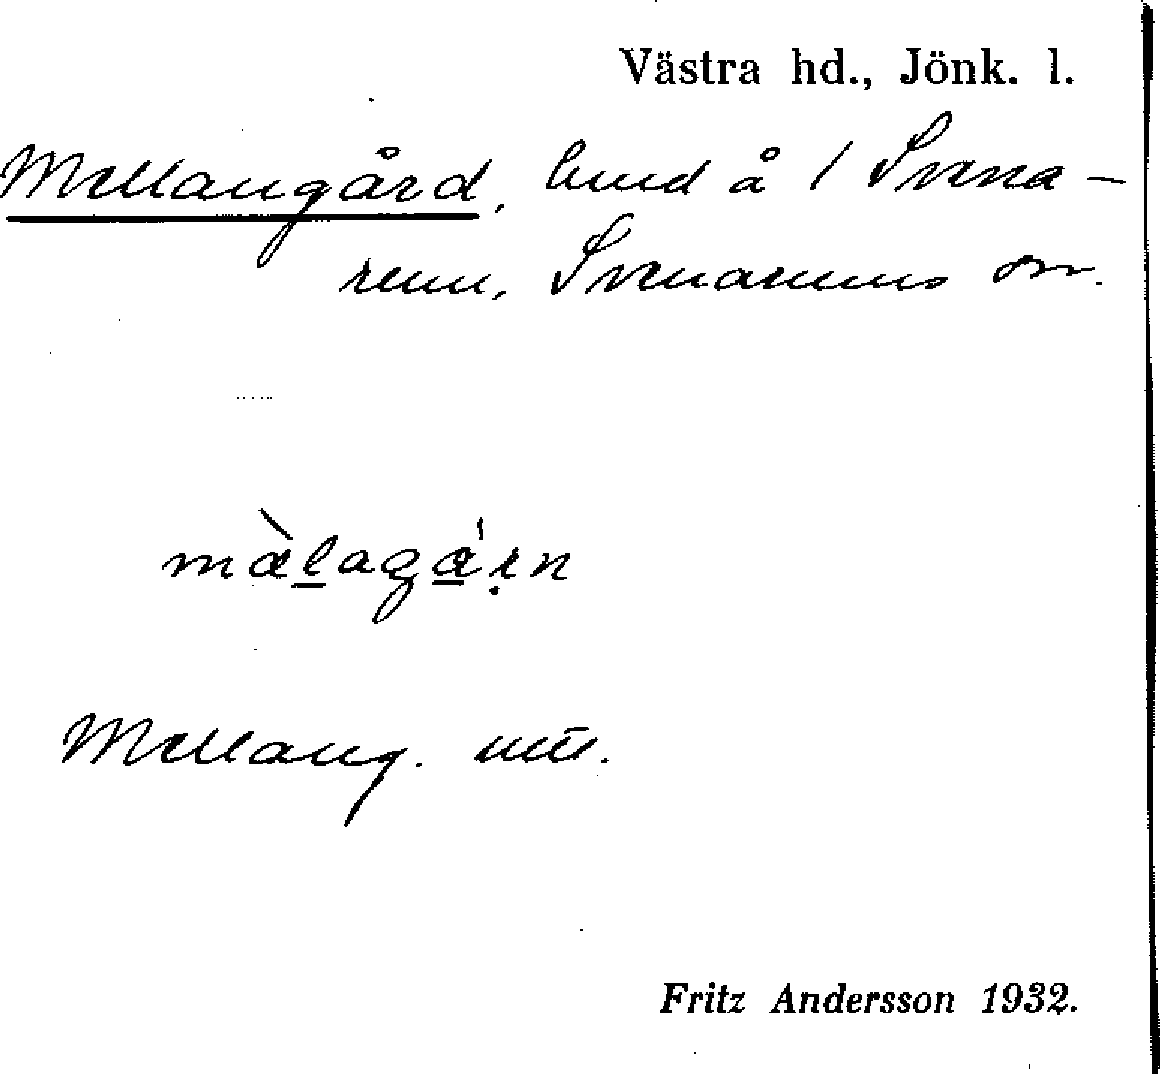 Västra hd., Jönk. l.
Mellangård, hmd å 1 Svena-
rum, Svenarums sn.
màlagá'rn
Mellang. utt.
Fritz Andersson 1932.